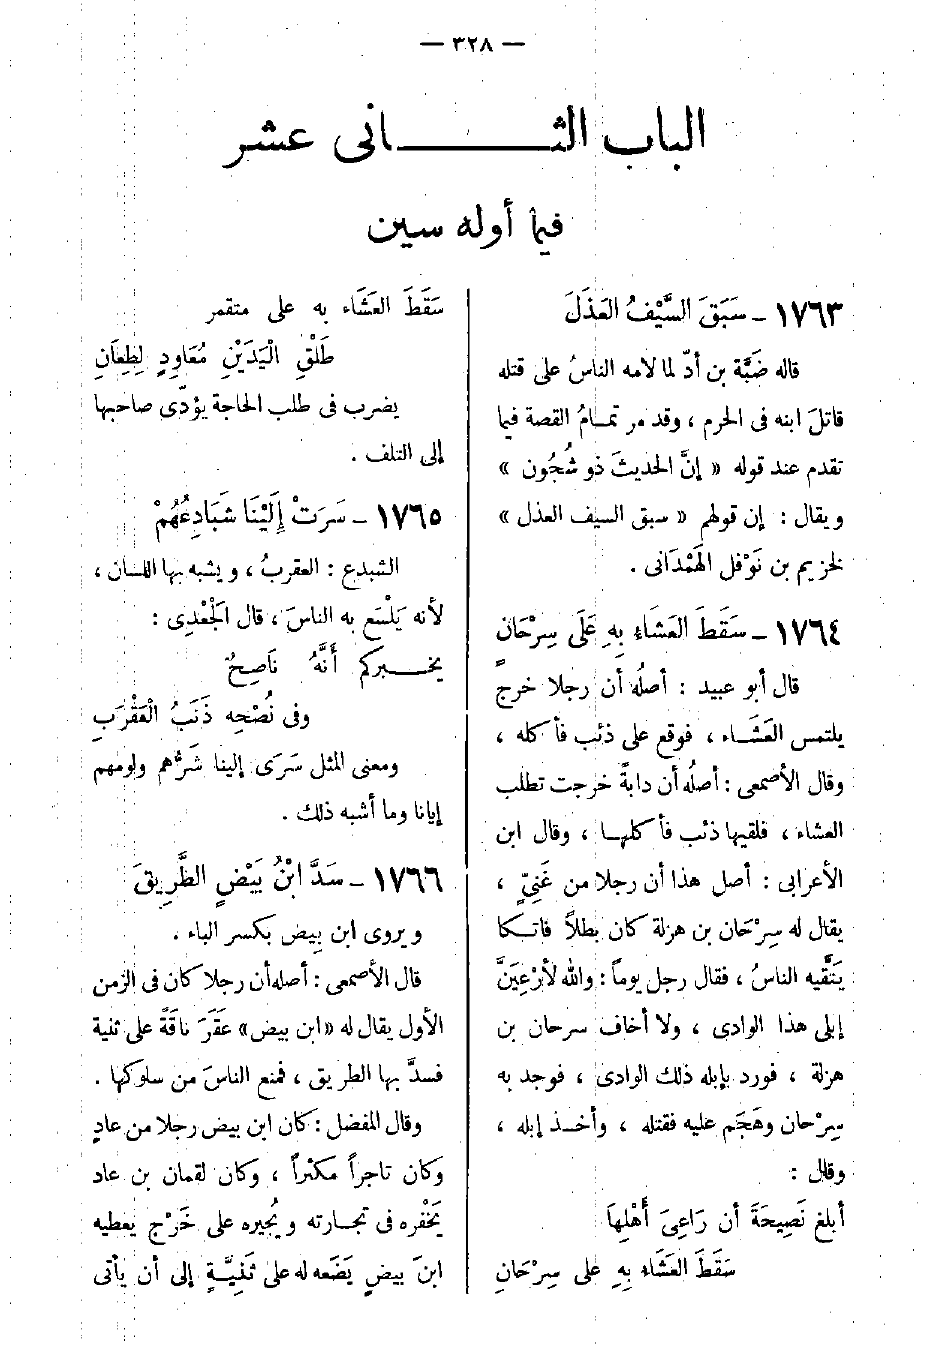 — ٣٢٨ —
الباب الثانى عشر
فيما أوله سين
١٧٦٣ – سَبَقَ السَّيْفُ العَذَلَ
قاله ضَبَّة بن أدّ لما لامه الناسُ على قتله
قاتلَ ابنه فى الحرم ، وقد مر تمامُ القصة فيما
تقدم عند قوله « إنَّ الحديثَ ذو شُجُون »
ويقال : إن قولهم « سبق السيف العذل »
لخزيم بن نَوْفل الهَمْدَانى .
١٧٦٤ – سَقَطَ العَشَاءِ بِهِ عَلَى سِرْحَانٍ
قال أبو عبيد : أصلُه أن رجلا خرج
يلتمس العَشَاء ، فوقع على ذئب فأكله ،
وقال الأصمعى : أصلُه أن دابةً خرجت تطلب
العشاء ، فلقيها ذئب فأكلها ، وقال ابن
الأعرابى : أصل هذا أن رجلا من غَنِىٍّ ،
يقال له سِرْحَان بن هزلة كان بطلاً فاتكا
يَتَّقيه الناسُ ، فقال رجل يوماً : والله لأرْعِيَنَّ
إبلى هذا الوادى ، ولا أخاف سرحان بن
هزلة ، فورد بإبله ذلك الوادى ، فوجد به
سِرْحان وهَجَم عليه فقتله ، وأخذ إبله ،
وقال :
أبلغ نَصِيحَةَ أن رَاعِىَ أَهْلِهاَ
سَقَطَ العَشَاء بِهِ على سِرْحَانِ
سَقَطَ العَشَاء به على متقمر
طَلْقِ الْيَدَيْنِ مُعَاوِدٍ لِطِعاَنِ
يضرب فى طلب الحاجة يؤدّى صاحبها
إلى التلف .
١٧٦٥ – سَرَتْ إلَيْنَا شَبَادِعُهُمْ
الشبدع : العقربُ ، ويشبه بها اللسان ،
لأنه يَلْسَع به الناسَ ، قال الجَعْدِى :
يخبركم أَنَّهُ نَاصِحٌ
وفى نُصْحِه ذَنَبُ الْعَقْرَبِ
ومعنى المثل سَرَى إلينا شَرُّهم ولومهم
إيانا وما أشبه ذلك .
١٧٦٦ – سَدَّ ابْنُ بَيْضٍ الطَّرِيقَ
ويروى ابن بِيض بكسر الباء .
قال الأصمعى : أصله أن رجلا كان فى الزمن
الأول يقال له «ابن بيض» عَقَرَ ناقَةً على ثنية
فسدَّ بها الطريق ، فمنع الناسَ من سلوكها .
وقال المفضل : كان ابن بيض رجلا من عادٍ
وكان تاجراً مكثراً ، وكان لقمان بن عاد
يَخْفره فى تجارته ويُجيره على خَرْج يعطيه
ابنَ بيضٍ يَضَعه له على ثَنِيَّةٍ إلى أن يأتى